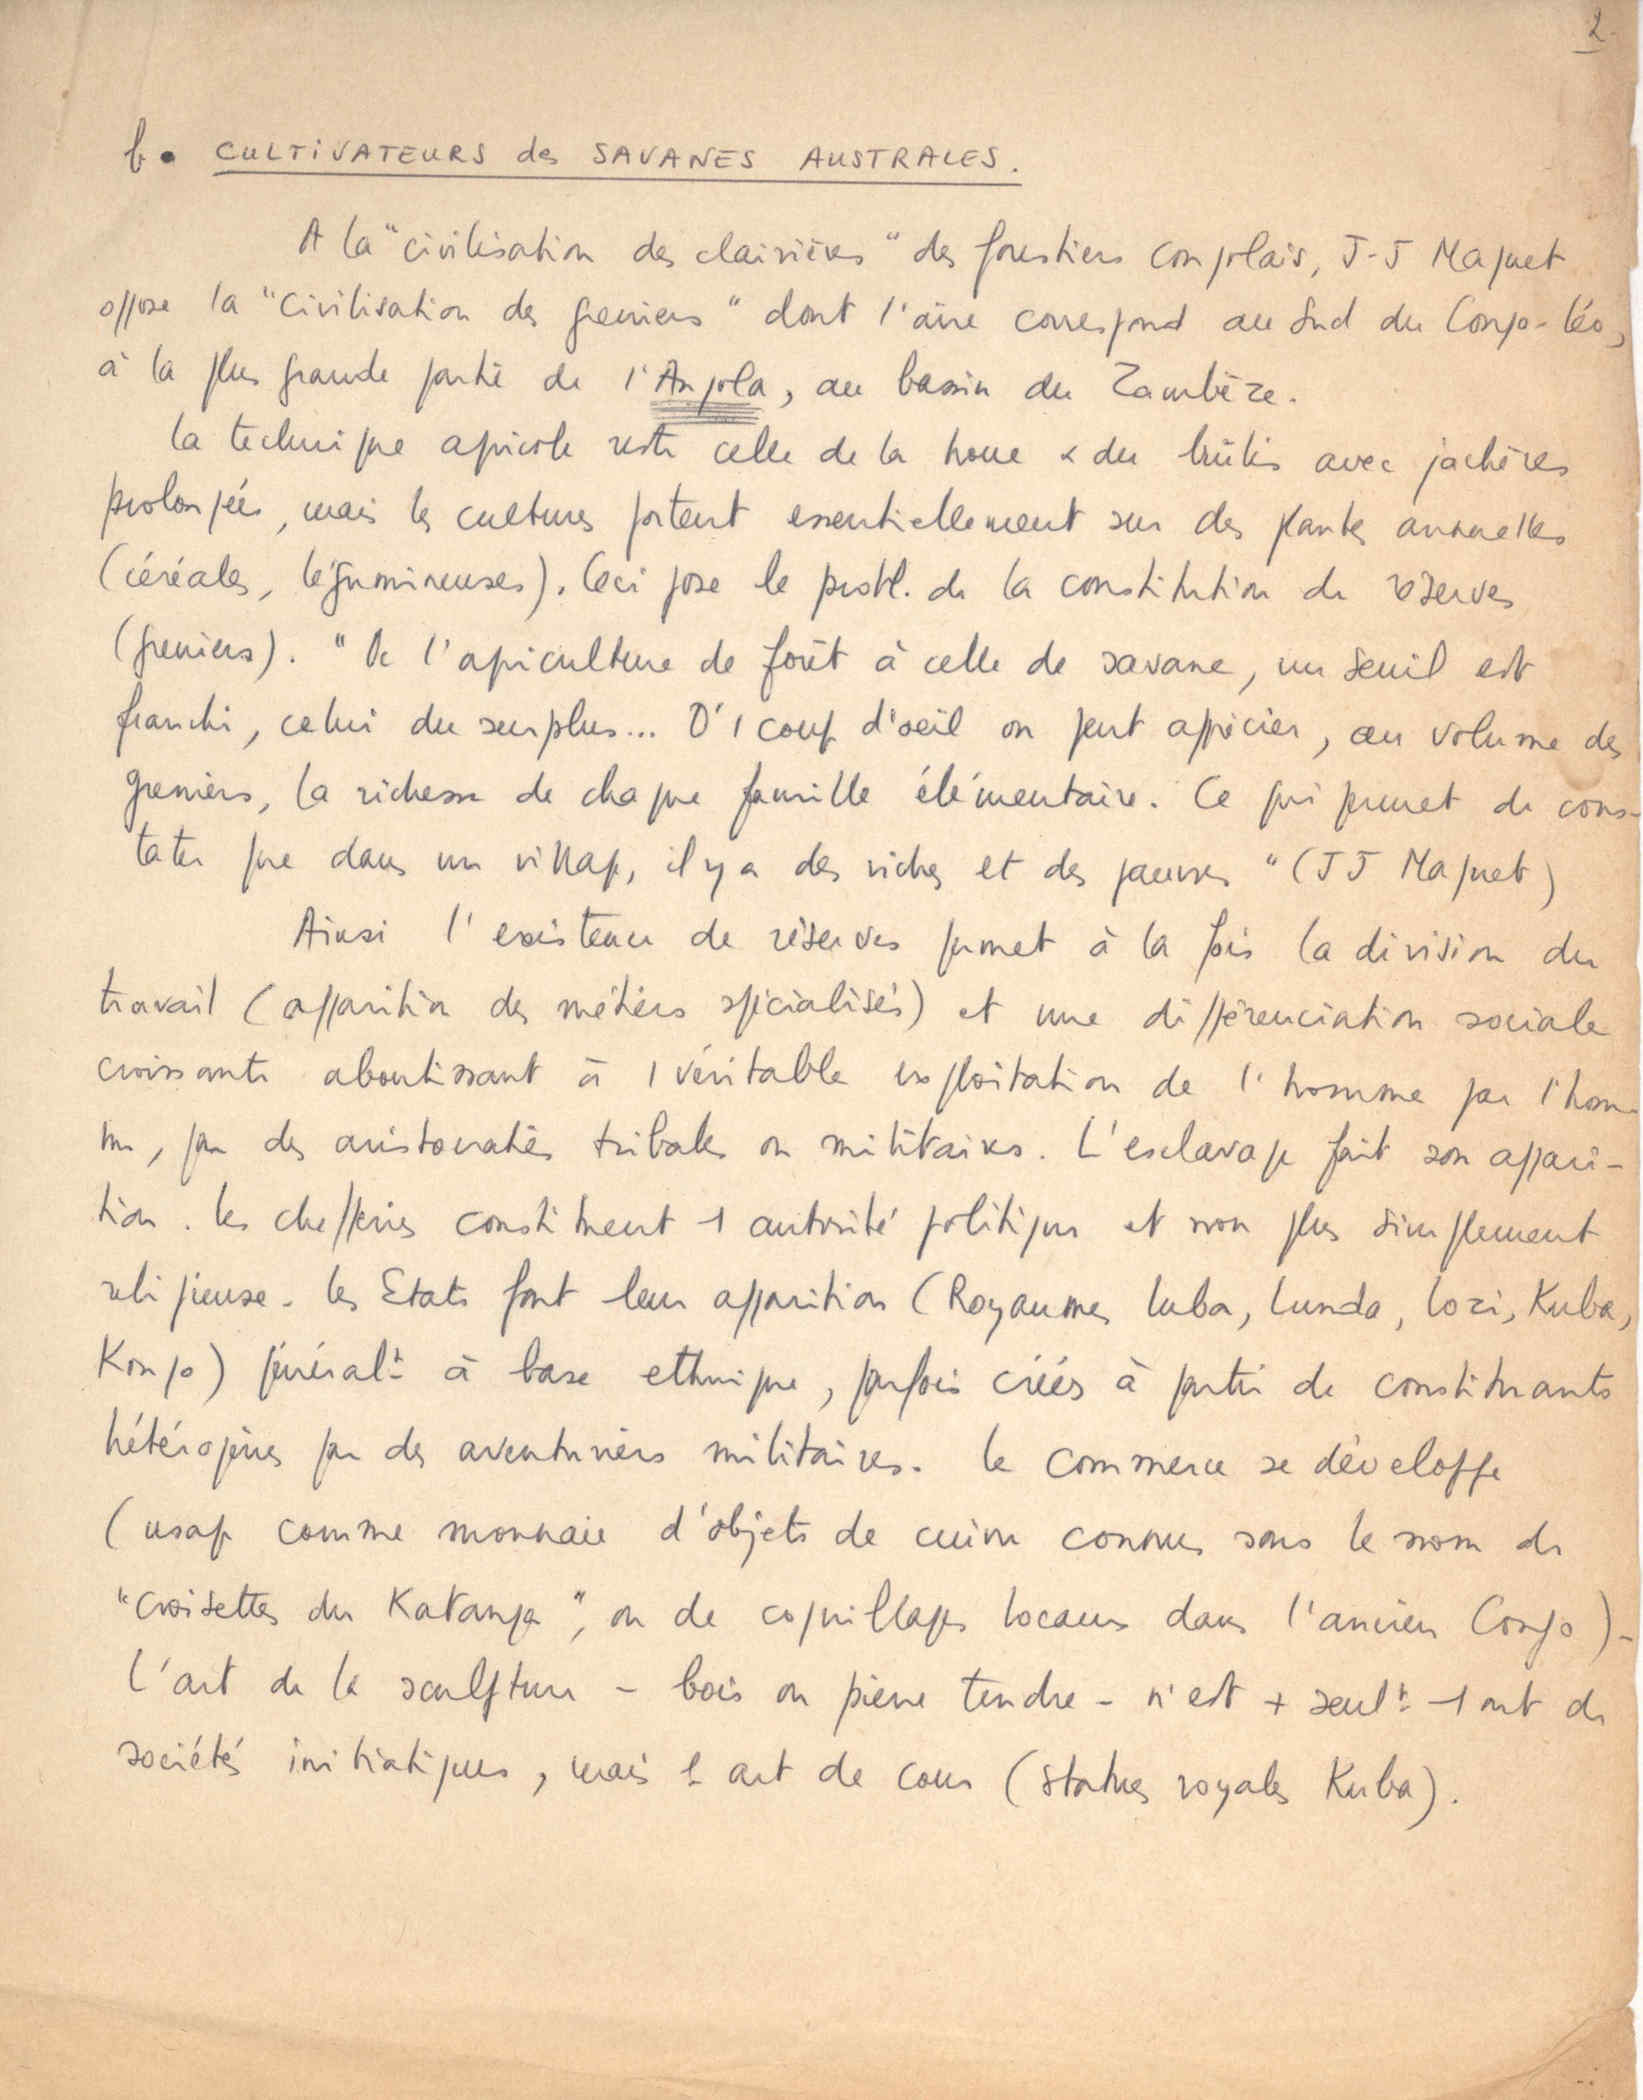 2.
b. CULTIVATEURS des SAVANES AUSTRALES.
A la "civilisation des clairières" des forestiers congolais, J-J Maquet
oppose la "civilisation des greniers" dont l'aire correspond au Sud du Congo-Léo,
à la plus grande partie de l'Angola, au bassin du Zambèze.
La technique agricole reste celle de la houe & du brûlis avec jachères
prolongées, mais les cultures portent essentiellement sur des plantes annuelles
(céréales, légumineuses). Ceci pose le probl. de la constitution de réserves
(greniers). "De l'agriculture de forêt à celle de savane, un seuil est
franchi, celui du surplus... D'1 coup d'oeil on peut apprécier, au volume des
greniers, la richesse de chaque famille élémentaire. Ce qui permet de cons-
tater que dans un village, il y a des riches et des pauvres" (J J Maquet)
Ainsi l'existence de réserves permet à la fois la division du
travail (apparition des métiers spécialisés) et une différenciation sociale
croissante aboutissant à 1 véritable exploitation de l'homme par l'hom-
me, par des aristocraties tribales ou militaires. L'esclavage fait son appari-
tion. Les chefferies constituent 1 autorité politique et non plus simplement
religieuse. Les Etats font leur apparition (Royaumes Luba, Lunda, Lozi, Kuba,
Kongo) généralt à base ethnique, parfois créés à partir de constituants
hétérogènes par des aventuriers militaires. Le commerce se développe
(usage comme monnaie d'objets de cuivre connus sous le nom de
"croisettes du Katanga", ou de coquillages locaux dans l'ancien Congo).
L'art de la sculpture - bois ou pierre tendre - n'est + seult 1 art de
sociétés initiatiques, mais 1 art de cour (statues royales Kuba).